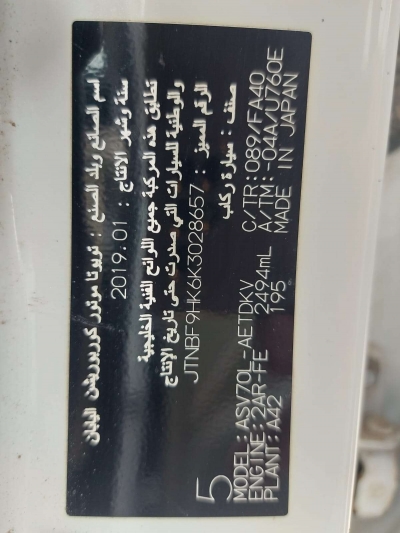 اسم الصانع وبلد الصنع : تويوتا موتور كوربوريشن اليابان
سنة وشهر الإنتاج : 2019.01
تطابق هذه المركبة جميع اللوائح الفنية الخليجية
والوطنية للسيارات التي صدرت حتى تاريخ الإنتاج
الرقم المميز : JTNBF9HK6K3028657
صنف : سيارة ركاب
5
MODEL: ASV70L-AETDKV C/TR: 089/FA40
ENGINE: 2AR-FE 2494mL A/TM: -04A/U760E
PLANT: A42 195 MADE IN JAPAN